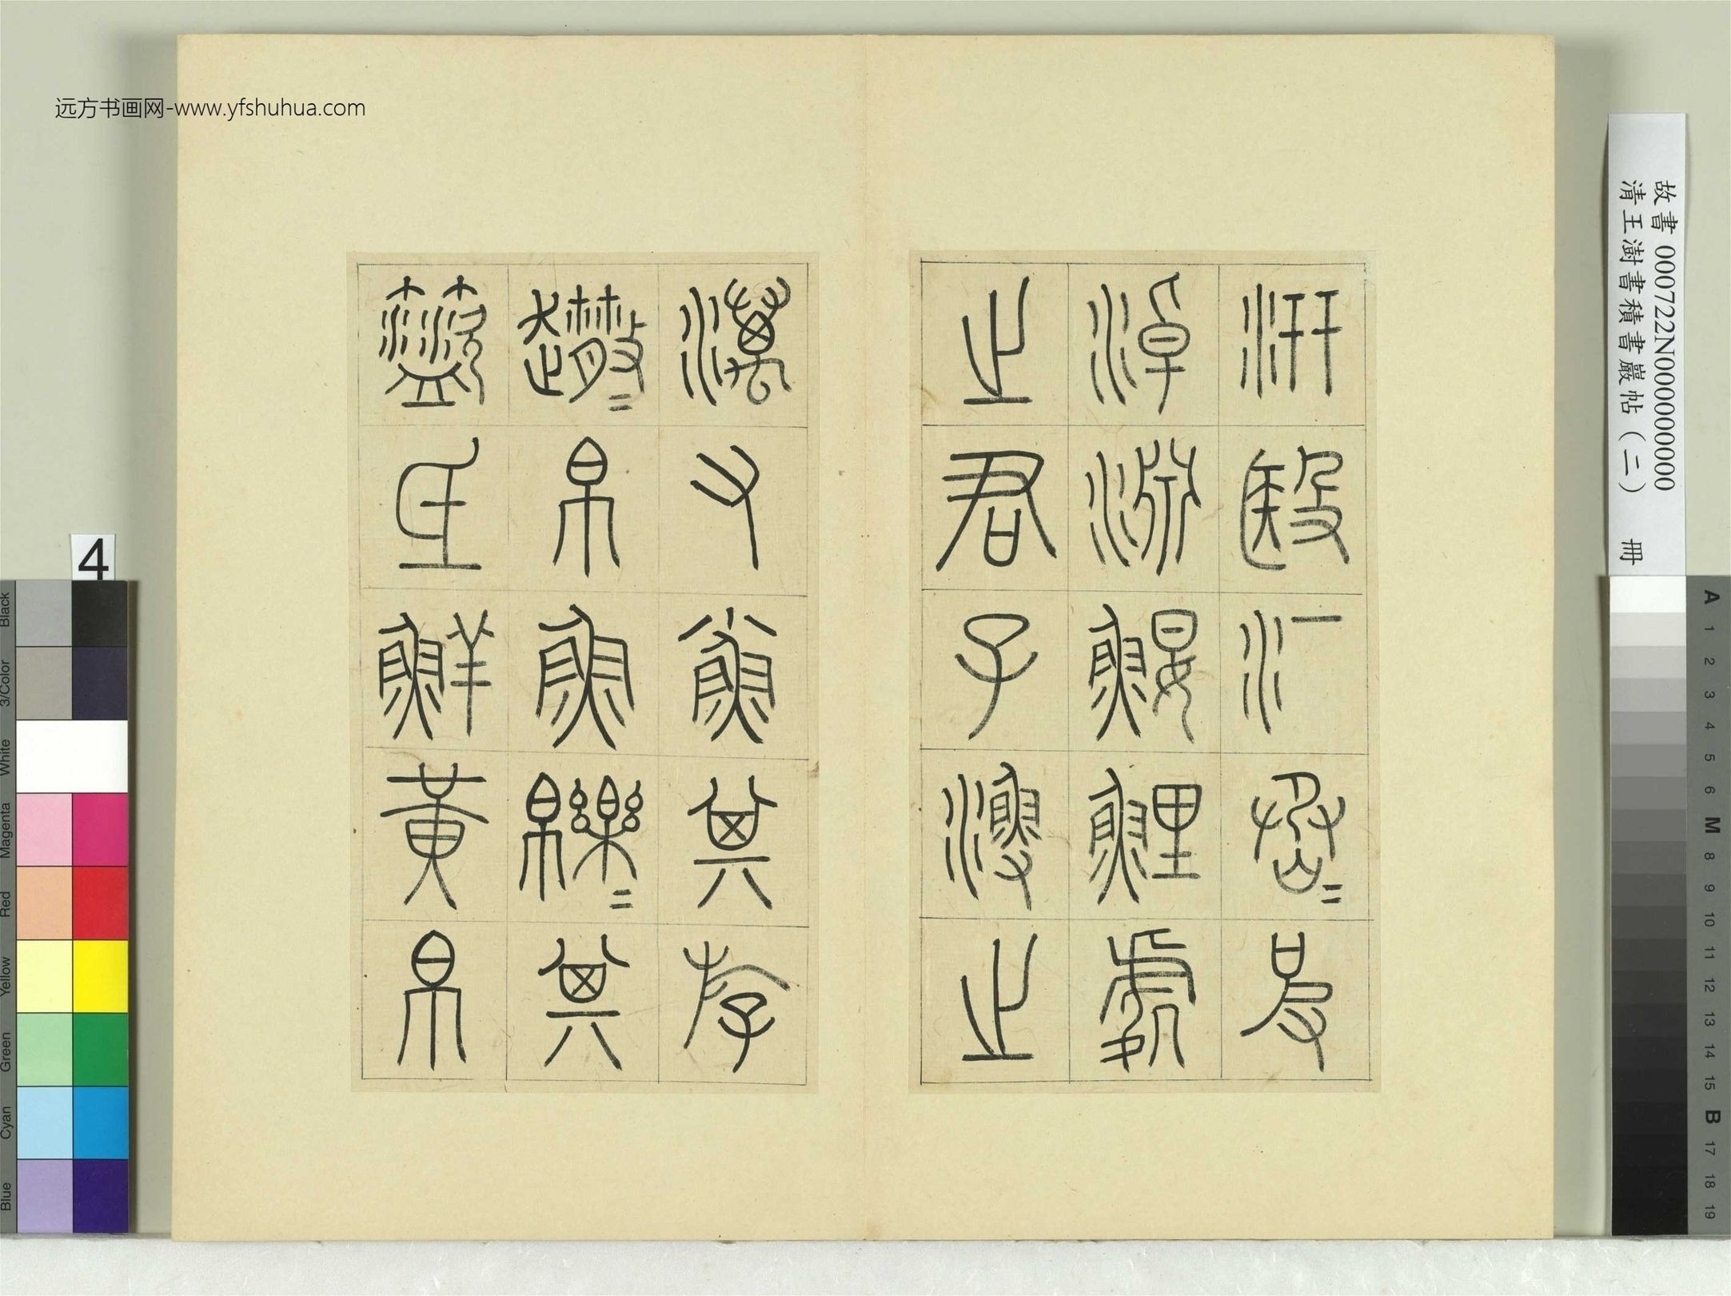 远方书画网-www.yfshuhua.com
汧殹沔丞=皮
淖淵鰋鯉處
之君子漁之
澫又小魚其斿
帛魚皪=其
盜氐鮮黃帛
故書 000722N000000000
清王澍書積書巖帖（二） 冊
4
Black
3/Color
White
Magenta
Red
Yellow
Green
Cyan
Blue
A
1
2
3
4
5
6
M
8
9
10
11
12
13
14
15
B
17
18
19